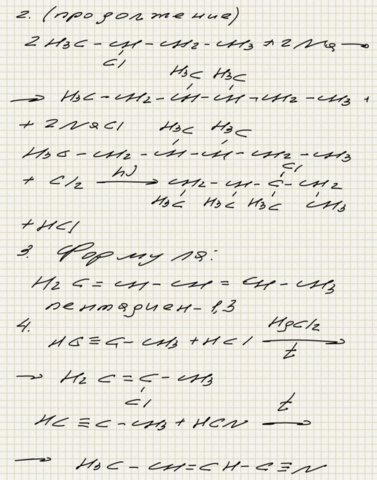 2. (продолжение)
2 H₃C - CH - CH₂ - CH₃ + 2 Na →
Cl
H₃C H₃C
→ H₃C - CH₂ - CH - CH - CH₂ - CH₃ +
+ 2 NaCl H₃C H₃C
H₃C - CH₂ - CH - CH - CH₂ - CH₃
Cl
+ Cl₂ hν → CH₂ - CH - C - CH₂
H₃C H₃C H₃C CH₃
+ HCl
3. Формула:
H₂C = CH - CH = CH - CH₃
пентадиен-1,3
4. HgCl₂
HC ≡ C - CH₃ + HCl →
t
→ H₂C = C - CH₃
Cl t
HC ≡ C - CH₃ + HCN →
→ H₃C - CH = CH - C ≡ N